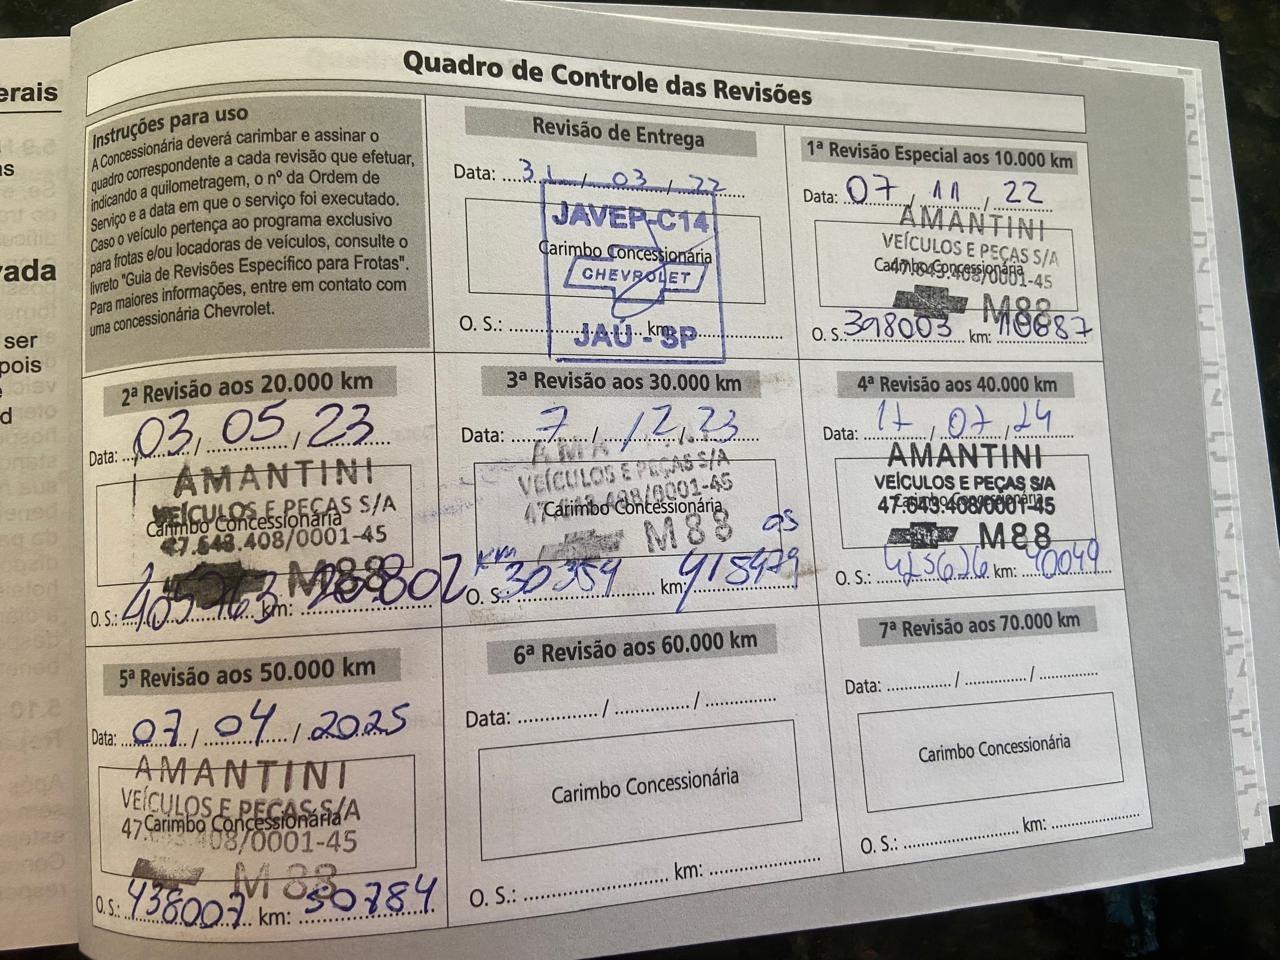 erais
as
vada
ser
pois
e
d
Quadro de Controle das Revisões
Instruções para uso
A Concessionária deverá carimbar e assinar o
quadro correspondente a cada revisão que efetuar,
indicando a quilometragem, o nº da Ordem de
Serviço e a data em que o serviço foi executado.
Caso o veículo pertença ao programa exclusivo
para frotas e/ou locadoras de veículos, consulte o
livreto "Guia de Revisões Específico para Frotas".
Para maiores informações, entre em contato com
uma concessionária Chevrolet.
Revisão de Entrega
Data: 31 / 03 / 22
JAVEP-C14
Carimbo Concessionária
CHEVROLET
O. S.: km:
JAÚ - SP
1ª Revisão Especial aos 10.000 km
Data: 07 / 11 / 22
AMANTINI
VEÍCULOS E PEÇAS S/A
Carimbo Concessionária
47.643.408/0001-45
M88
O. S.: 398003 km: 10687
2ª Revisão aos 20.000 km
Data: 03 / 05 / 23
AMANTINI
VEÍCULOS E PEÇAS S/A
Carimbo Concessionária
47.643.408/0001-45
M88
O. S.: 405763 km: 20802
3ª Revisão aos 30.000 km
Data: 7 / 12 / 23
AMA
VEÍCULOS E PEÇAS S/A
47.643.408/0001-45
Carimbo Concessionária
M88
km os
O. S.: 30354 km: 415479
4ª Revisão aos 40.000 km
Data: 17 / 07 / 24
AMANTINI
VEÍCULOS E PEÇAS S/A
Carimbo Concessionária
47.643.408/0001-45
M88
O. S.: 425626 km: 40049
5ª Revisão aos 50.000 km
Data: 07 / 04 / 2025
AMANTINI
VEÍCULOS E PEÇAS S/A
Carimbo Concessionária
47.643.408/0001-45
M88
O. S.: 438007 km: 50784
6ª Revisão aos 60.000 km
Data: / /
Carimbo Concessionária
O. S.: km:
7ª Revisão aos 70.000 km
Data: / /
Carimbo Concessionária
O. S.: km: